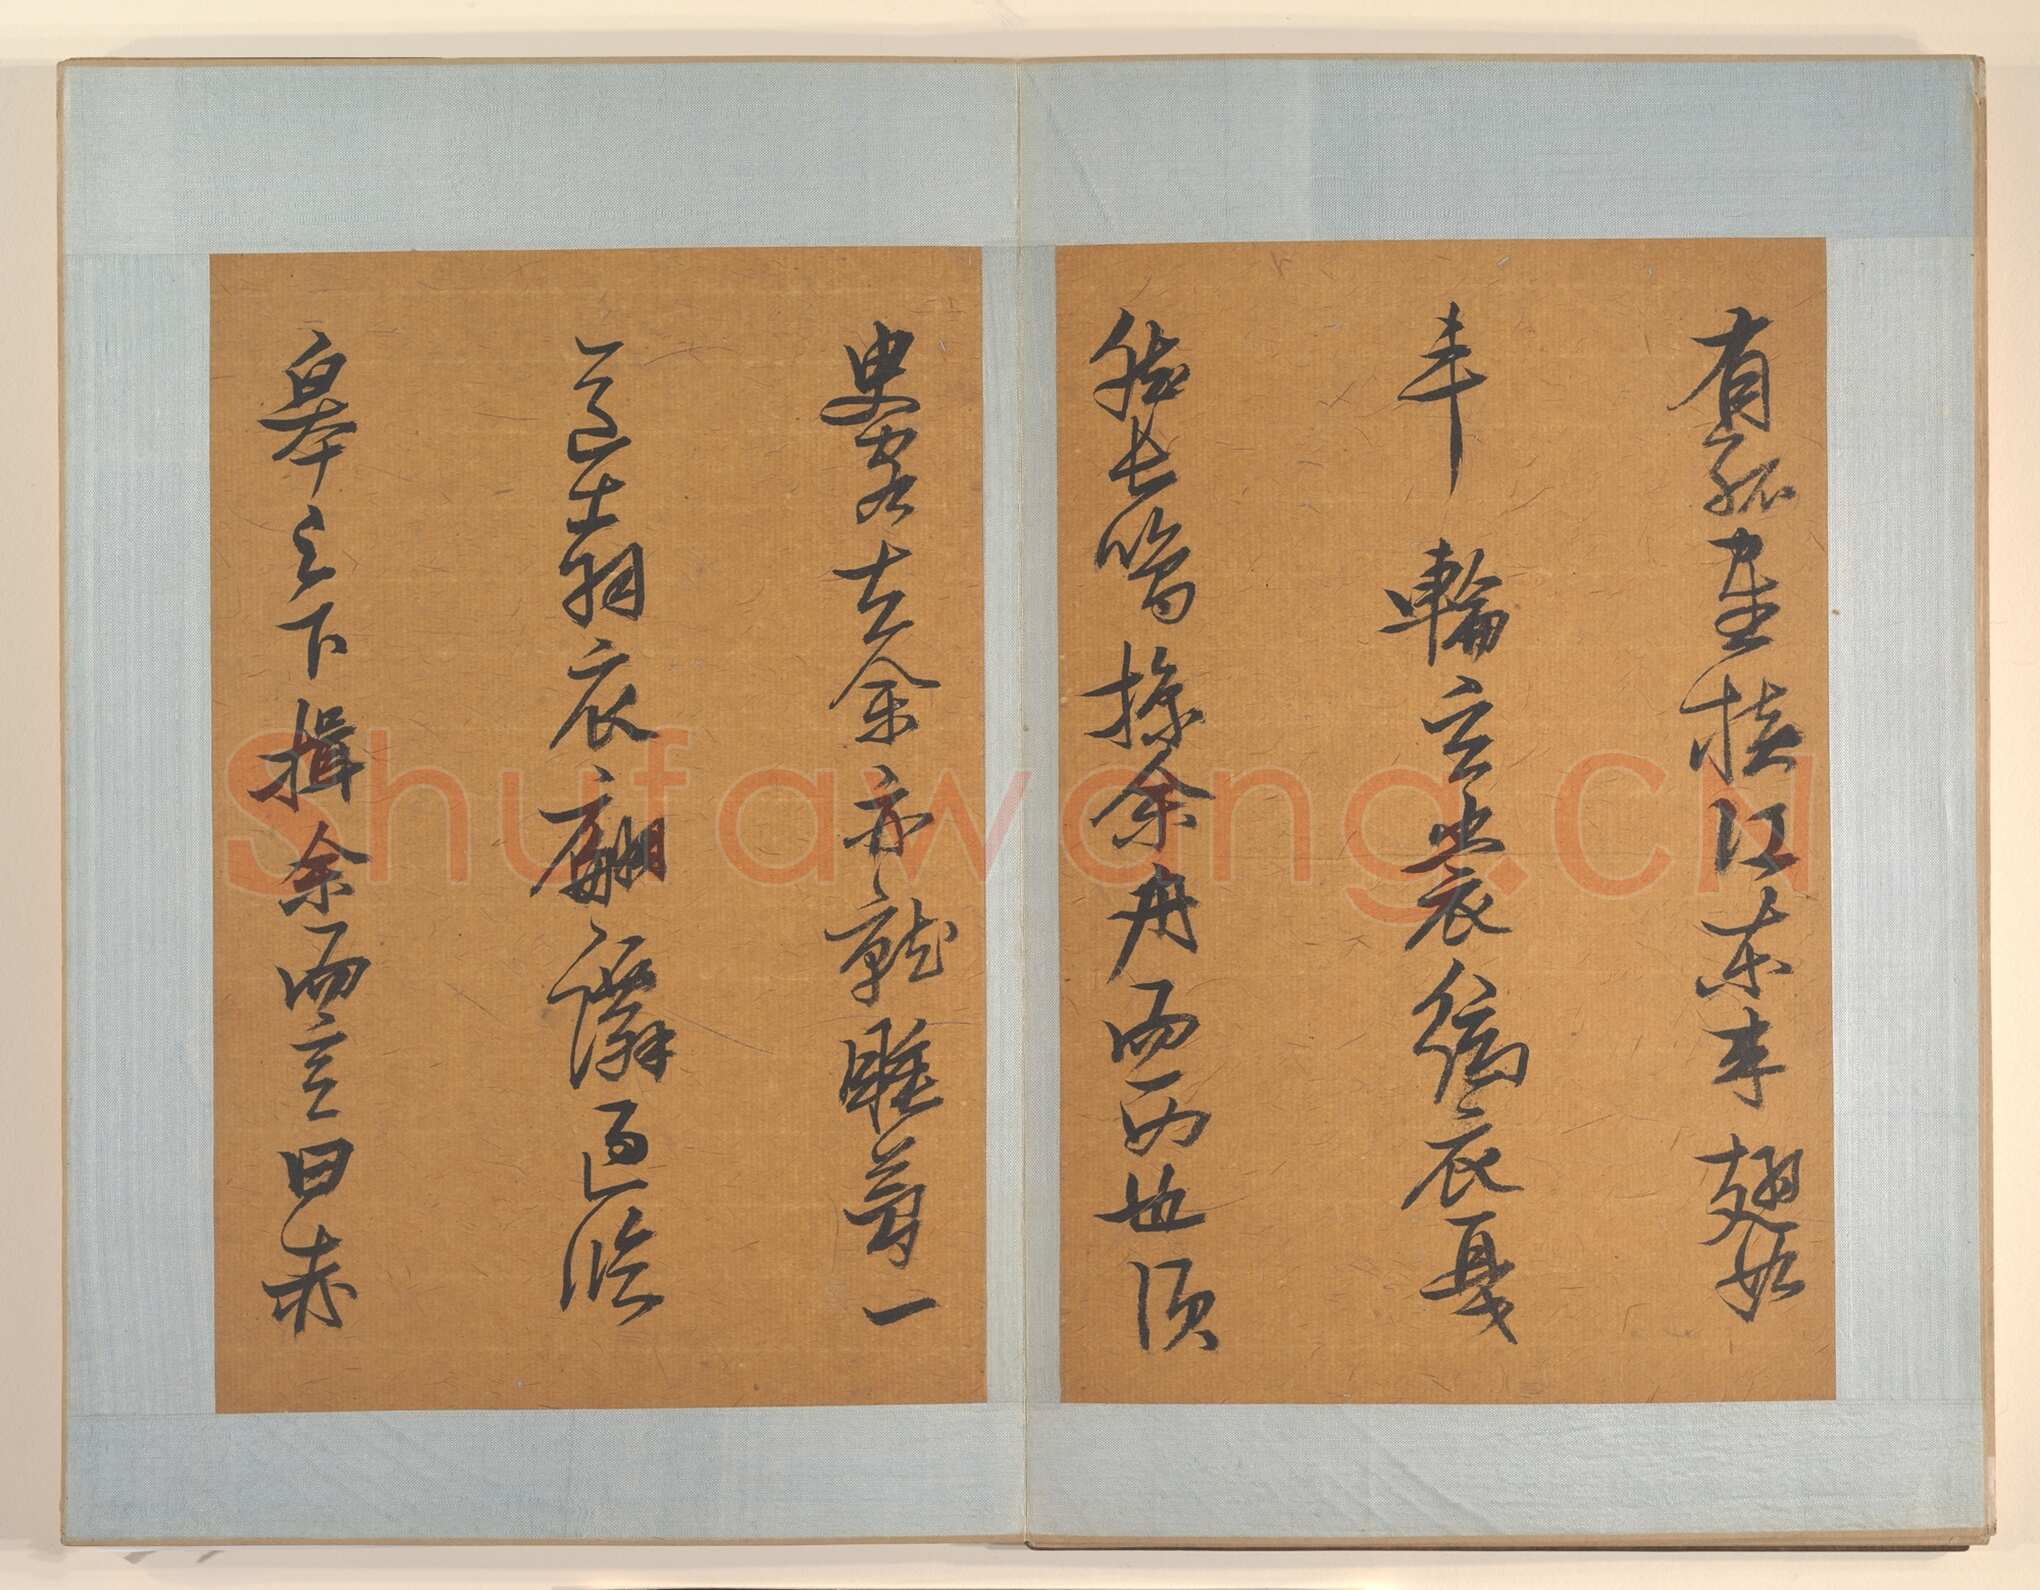 有孤鶴橫江東來翅如
車輪玄裳縞衣戛
然長鳴掠余舟而西也須
臾客去余亦就睡夢一
道士羽衣翩僊過臨
皋之下揖余而言曰赤
Shufawang.CN